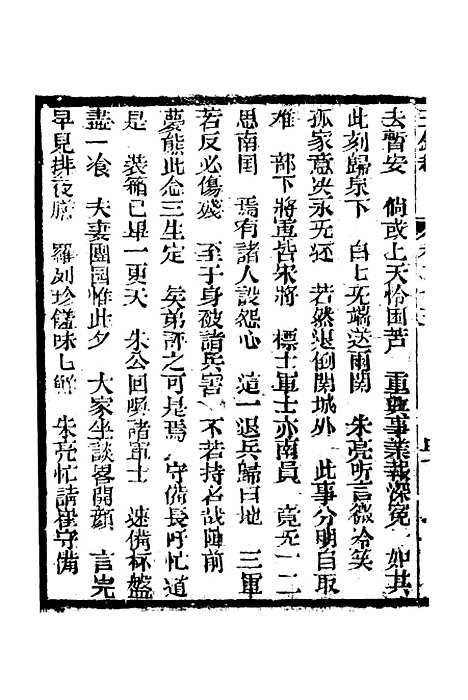 去暫安　倘或上天怜国苦　重興事業報深冤　如其
此刻歸泉下　白七无端送兩関　朱亮听言微冷笑
孤家意決永无狂　若然退倒関城外　此事分明自取
难　部下將軍皆朱將　標士軍士亦南員　竟无一二
思南国　焉有諸人設怨心　這一退兵歸白地　三軍
若反必傷殘　至于身破諸兵害　不若持名战陣前
夢熊此念三生定　矣弟評之可是焉　守備長吁忙道
是　裝箱已畢一更天　朱公回喚諸軍士　速備杯盤
盡一飡　夫妻團圓惟此夕　大家坐談畧開顏　言完
早見排夜膳　羅列珍饈味七鮮　朱亮忙請崔守備